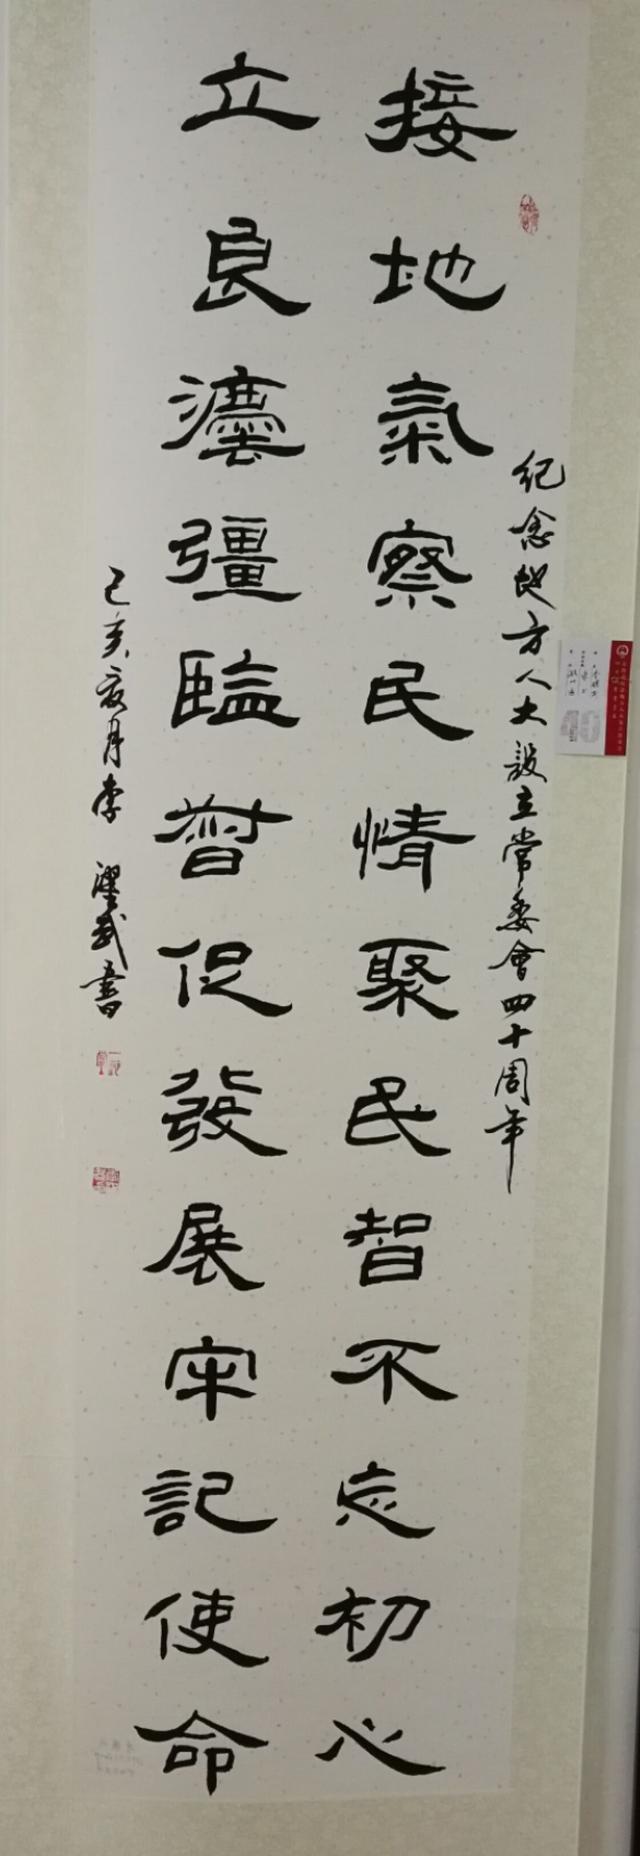 紀念地方人大設立常委會四十周年
接地氣察民情聚民智不忘初心
立良灋彊監督促發展牢記使命
己亥月李武書